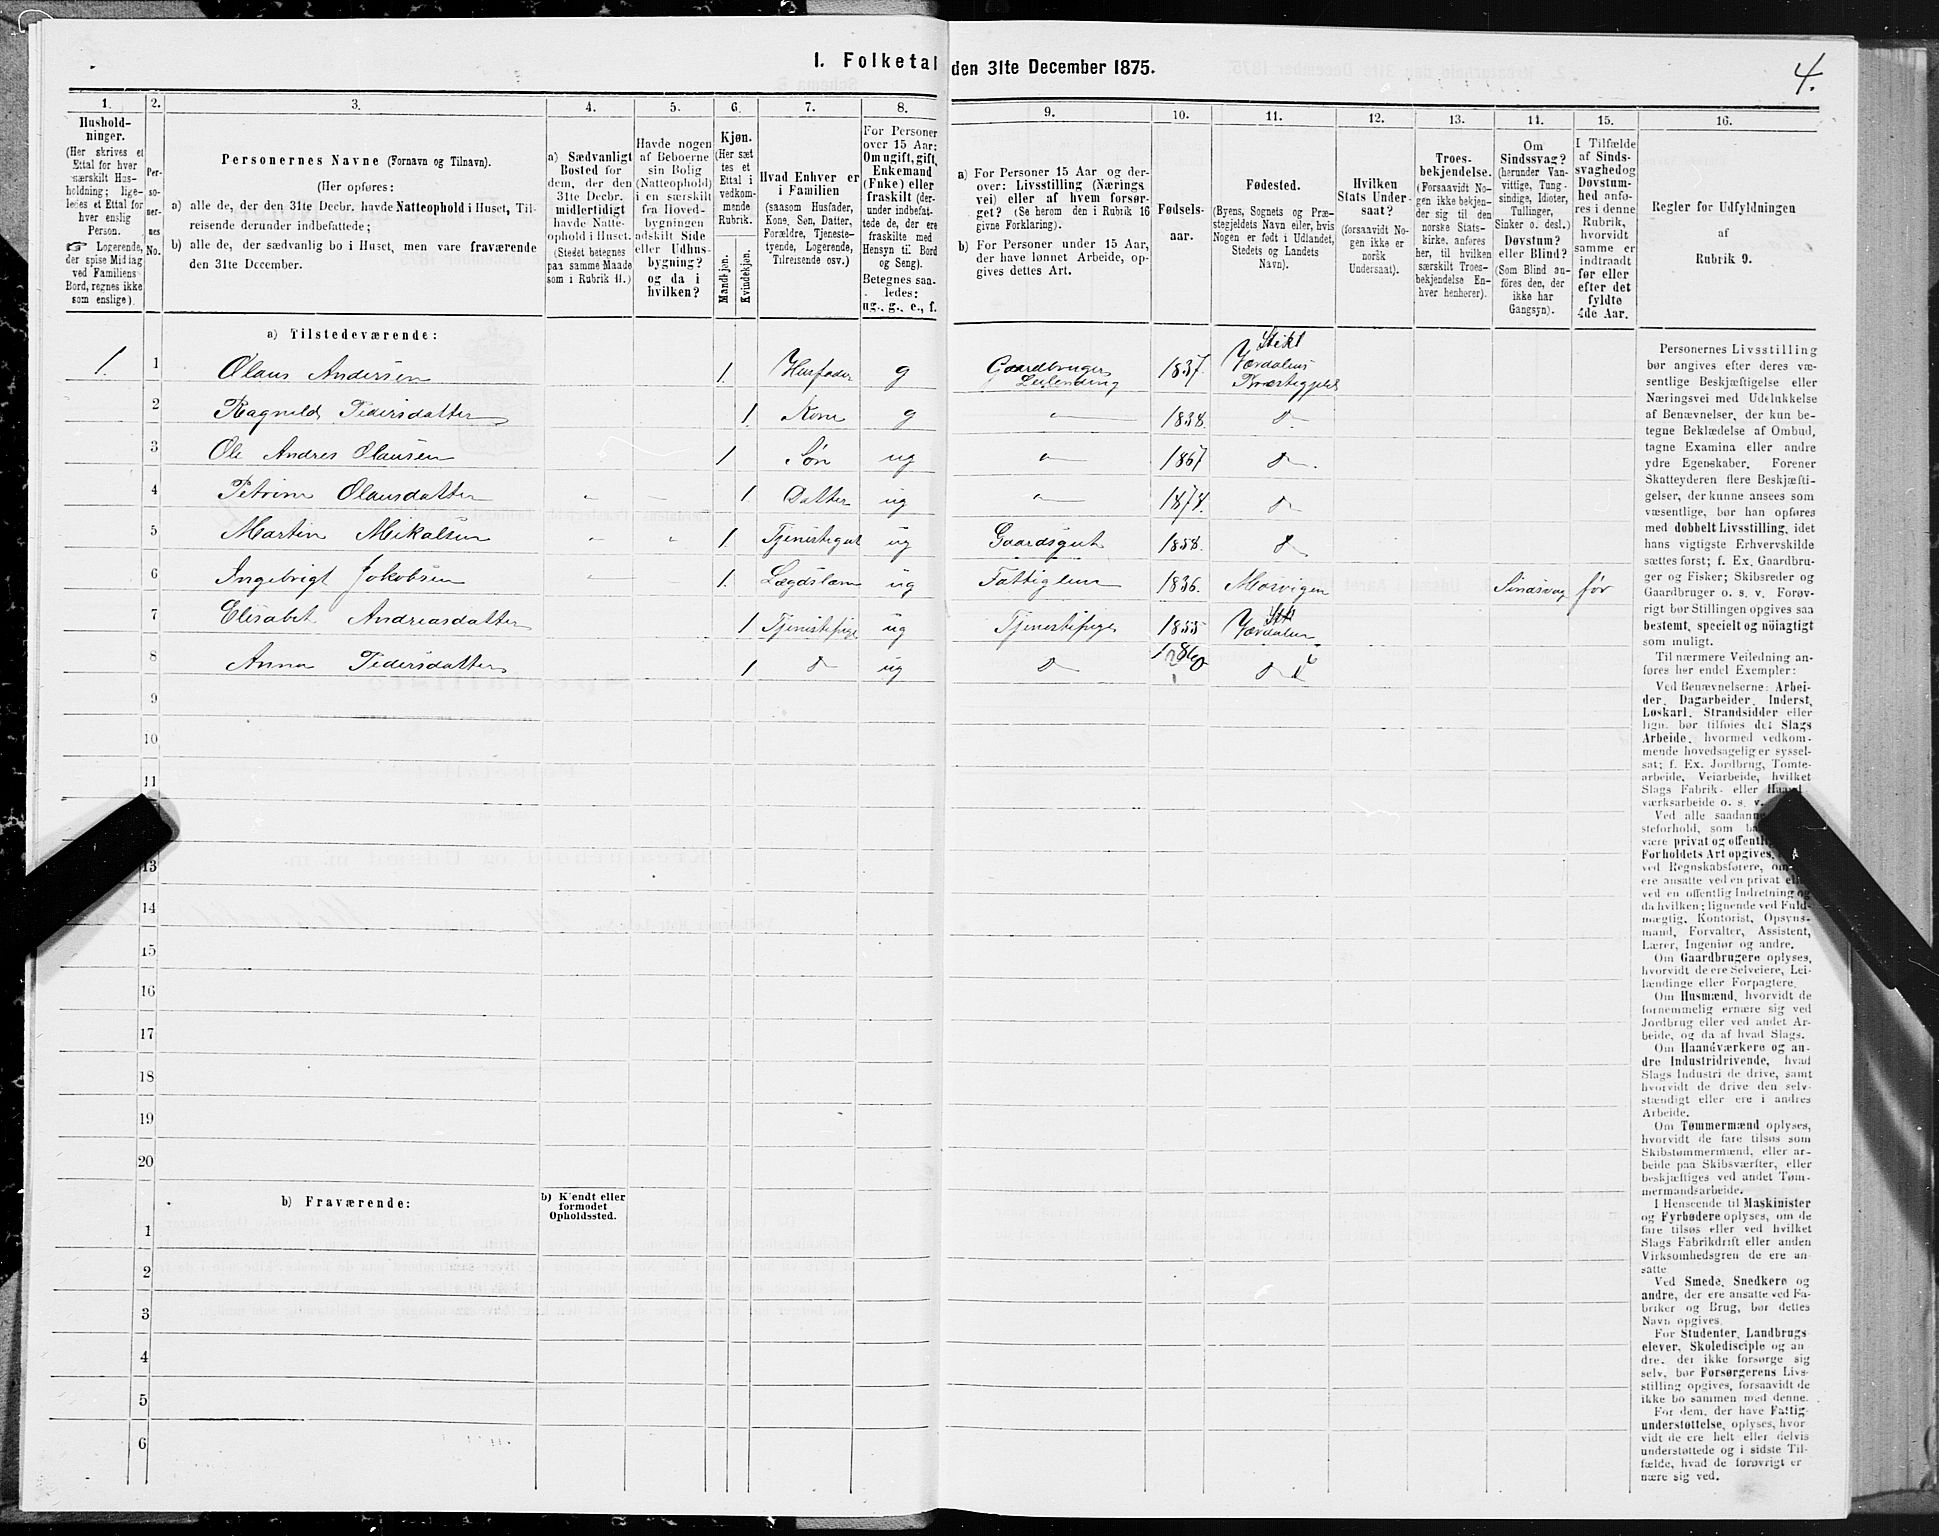 I. Folketal den 31te December 1875.
4.
1.
2.
3.
4.
5.
6.
7.
8.
9.
10.
11.
12.
13.
14.
15.
16.
Hushold-
ninger.
(Her skrives et
Ettal for hver
særskilt Hus-
holdning; lige-
ledes et Ettal for
hver enslig
Person.
☞ Logerende,
der spise Middag
ved Familiens
Bord, regnes ikke
som enslige).
Per-
so-
ner-
nes
No.
Personernes Navne (Fornavn og Tilnavn).
(Her opføres:
a) alle de, der den 31te Decbr. havde Natteophold i Huset, Til-
reisende derunder indbefattede;
b) alle de, der sædvanlig bo i Huset, men vare fraværende
den 31te December.
a) Sædvanligt
Bosted for
dem, der den
31te Decbr.
midlertidigt
havde Natte-
ophold i Huset.
(Stedet betegnes
paa samme Maade
som i Rubrik 11.)
Havde nogen
af Beboerne
sin Bolig
(Natteophold)
i en særskilt
fra Hoved-
bygningen
adskilt Side
eller Udhus-
bygning?
og da i
hvilken?
Kjøn.
(Her sæt
tes et
Ettal i
vedkom-
mende
Rubrik.
Mandkjøn.
Kvindekjøn.
Hvad Enhver er
i Familien
(saasom Husfader,
Kone, Søn, Datter,
Forældre, Tjeneste-
tyende, Logerende,
Tilreisende osv.)
For Personer
over 15 Aar:
Om ugift, gift,
Enkemand
(Enke) eller
fraskilt (der-
under indbefat-
tede de, der ere
fraskilte med
Hensyn til Bord
og Seng).
Betegnes saa-
ledes:
ug., g., e., f.
a) For Personer 15 Aar og der-
over: Livsstilling (Nærings
vei) eller af hvem forsør-
get? (Se herom den i Rubrik 16
givne Forklaring).
b) For Personer under 15 Aar,
der have lønnet Arbeide, op-
gives dettes Art.
Fødsels-
aar.
Fødested.
(Byens, Sognets og Præ-
stegjeldets Navn eller, hvis
Nogen er født i Udlandet,
Stedets og Landets
Navn).
Hvilken
Stats Under-
saat?
(forsaavidt No-
gen ikke er
norsk
Undersaat).
Troes-
bekjendelse.
(Forsaavidt No-
gen ikke bekjen-
der sig til den
norske Stats-
kirke, anføres
her, til hvilken
særskilt Troes-
bekjendelse En-
hver henhører).
Om
Sindssvag?
(herunder Van-
vittige, Tung-
sindige, Idioter,
Tullinger,
Sinker o. desl.)
Døvstum?
eller Blind?
(Som Blind an-
føres den, der
ikke har
Gangsyn).
I Tilfælde
af Sinds-
svaghed og
Døvstum-
hed anfø-
res i denne
Rubrik,
hvorvidt
samme er
indtraadt
før eller
efter det
fyldte
4de Aar.
Regler for Udfyldningen
af
Rubrik 9.
a) Tilstedeværende:
1. 1 Olaus Andersen 1. Husfader g Gaardbruger Leilending 1837. Stikl Værdalens Præstegjeld
2 Ragnild Pedersdatter 1. Kone g — 1838. d.
3 Ole Andres Olausen 1 Søn ug " 1867 d.
4 Petrine Olausdatter " — 1 Datter ug — 1874. d
5 Martin Mikalsen " " 1. Tjenistegut ug Gaardsgut 1858. d
6 Ingebrigt Jokobsen " 1. Lægdslem ug Fattiglem 1836. Mosvigen Sindsvag før
7 Elisabet Andreasdatter 1 Tjenistepige ug Tjenestepige 1855 Stk Værdalen
8 Anna Pedersdatter 1 d ug d 1860 d
9
10
11
13
14
15
16
17
18
19
20
b) Fraværende:
b) Kjendt eller
formodet
Opholdssted.
1
2
3
4
5
6
Personernes Livsstilling
bør angives efter deres væ-
sentlige Beskjæftigelse eller
Næringsvei med Udelukkelse
af Benævnelser, der kun be-
tegne Beklædelse af Ombud,
tagne Examina eller andre
ydre Egenskaber. Forener
Skatteyderen flere Beskjæfti-
gelser, der kunne ansees som
væsentlige, bør han opføres
med dobbelt Livsstilling, idet
hans vigtigste Erhvervskilde
sættes først; f. Ex. Gaardbru-
ger og Fisker; Skibsreder og
Gaardbruger o. s. v. Forøv-
rigt bør Stillingen opgives saa
bestemt, specielt og nöiagtigt
som muligt.
Til nærmere Veiledning an-
føres her endel Exempler:
Ved Benævnelserne: Arbei-
der, Dagarbeider, Inderst,
Løskarl, Strandsidder eller
lign. bør tilføies det Slags
Arbeide, hvormed vedkom-
mende hovedsagelig er syssel-
sat; f. Ex. Jordbrug, Tomte-
arbeide, Veiarbeide, hvilket
Slags Fabrik- eller Haand-
værksarbeide o. s. v.
Ved alle saadanne
steforhold, som
være privat og offentlig
Forholdets Art opgives,
ved Regnskabsførere, om
ere ansatte ved en privat eller
ved en offentlig Indretning og
da hvilken; lignende ved Fuld-
mægtig, Kontorist, Opsyns-
mand, Forvalter, Assistent,
Lærer, Ingeniør og andre.
Om Gaardbrugere oplyses,
hvorvidt de ere Selveiere, Lei-
lændinge eller Forpagtere.
Om Husmænd, hvorvidt de
fornemmelig ernære sig ved
Jordbrug eller ved andet Ar-
beide, og da af hvad Slags.
Om Haandværkere og an-
dre Industridrivende, hvad
Slags Industri de drive, samt
hvorvidt de drive den selv-
stændigt eller ere i andres
Arbeide.
Om Tømmermænd oplyses,
hvorvidt de fare tilsøs som
Skibstømmermænd, eller ar-
beide paa Skibsværfter, eller
beskjæftiges ved andet Tøm-
mermandsarbeide.
I Henseende til Maskinister
og Fyrbødere oplyses, om de
fare tilsøs eller ved hvilket
Slags Fabrikdrift eller anden
Virksomhedsgren de ere an-
satte
Ved Smede, Snedkere og
andre, der ere ansatte ved Fa-
briker og Brug, bør dettes
Navn opgives.
For Studenter, Landbrugs-
elever, Skoledisciple og an-
dre, der ikke forsørge sig
selv, bør Forsørgerens Livs-
stilling opgives, forsaavidt de
ikke bo sammen med denne.
For dem, der have Fattig-
understøttelse, oplyses, hvor-
vidt de ere helt eller delvis
understøttede og i sidste Til-
fælde, hvad de forøvrigt er
nære sig ved.